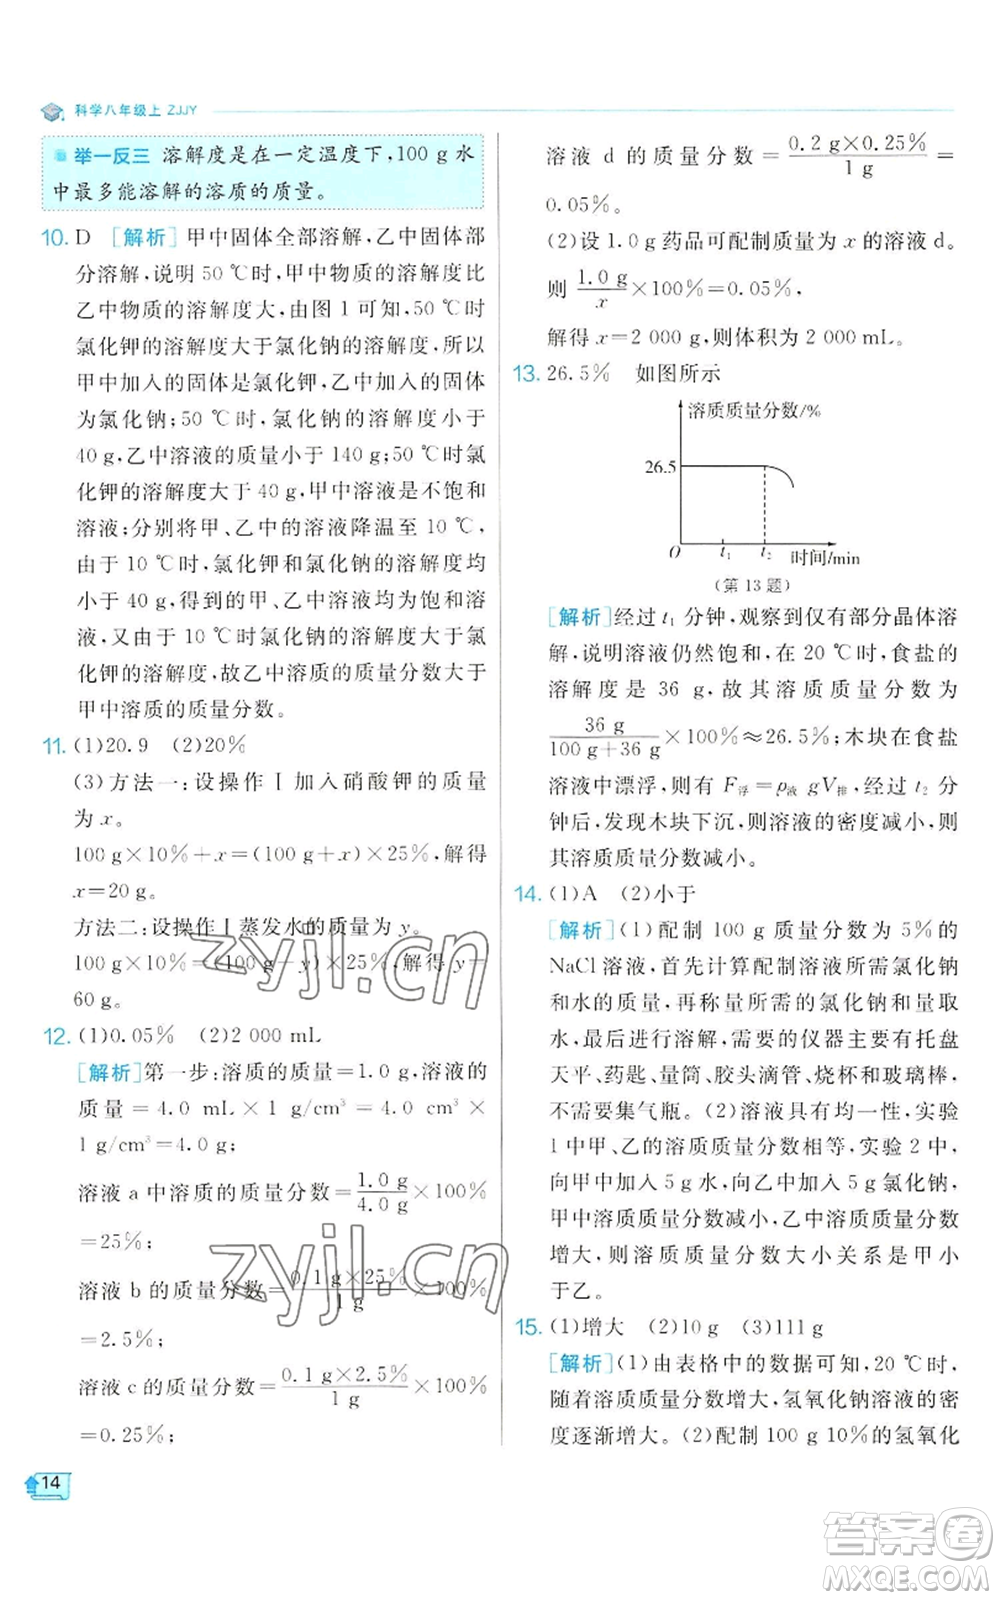 科学八年级上 ZJJY
举一反三 溶解度是在一定温度下,100 g 水
中最多能溶解的溶质的质量。
10. D [解析]甲中固体全部溶解,乙中固体部
分溶解,说明 50 ℃时,甲中物质的溶解度比
乙中物质的溶解度大,由图 1 可知,50 ℃时
氯化钾的溶解度大于氯化钠的溶解度,所以
甲中加入的固体是氯化钾,乙中加入的固体
为氯化钠;50 ℃时,氯化钠的溶解度小于
40 g,乙中溶液的质量小于 140 g;50 ℃时氯
化钾的溶解度大于 40 g,甲中溶液是不饱和
溶液;分别将甲、乙中的溶液降温至 10 ℃,
由于 10 ℃时,氯化钾和氯化钠的溶解度均
小于 40 g,得到的甲、乙溶液均为饱和溶
液,又由于 10 ℃时氯化钠的溶解度大于氯
化钾的溶解度,故乙中溶质的质量分数大于
甲中溶质的质量分数。
11. (1)20.9 (2)20%
(3)方法一:设操作Ⅰ加入硝酸钾的质量
为 x。
100 g×10%+x=(100 g+x)×25%,解得
x=20 g。
方法二:设操作Ⅰ蒸发水的质量为 y。
100 g×10%=(100 g-y)×25%,解得 y=
60 g。
12. (1)0.05% (2)2 000 mL
[解析]第一步:溶质的质量=1.0 g,溶液的
质量 = 4.0 mL × 1 g/cm³ = 4.0 cm³ ×
1 g/cm³=4.0 g;
溶液 a 中溶质的质量分数=1.0 g/4.0 g×100%
=25%;
溶液 b 的质量分数=0.1 g×25%/1 g×100%
=2.5%;
溶液 c 的质量分数=0.1 g×2.5%/1 g×100%
=0.25%;
溶液 d 的质量分数=0.2 g×0.25%/1 g=
0.05%。
(2)设 1.0 g 药品可配制质量为 x 的溶液 d。
则1.0 g/x×100%=0.05%,
解得 x=2 000 g,则体积为 2 000 mL。
13. 26.5% 如图所示
溶质质量分数/%
26.5
O t₁ t₂ 时间/min
(第 13 题)
[解析]经过 t₁ 分钟,观察到仅有部分晶体溶
解,说明溶液仍然饱和,在 20 ℃时,食盐的
溶解度是 36 g,故其溶质质量分数为
36 g/100 g+36 g×100%≈26.5%;木块在食盐
溶液中漂浮,则有 F浮=ρ液 gV排,经过 t₂ 分
钟后,发现木块下沉,则溶液的密度减小,则
其溶质质量分数减小。
14. (1)A (2)小于
[解析](1)配制 100 g 质量分数为 5%的
NaCl 溶液,首先计算配制溶液所需氯化钠
和水的质量,再称量所需的氯化钠和量取
水,最后进行溶解,需要的仪器主要有托盘
天平、药匙、量筒、胶头滴管、烧杯和玻璃棒,
不需要集气瓶。(2)溶液具有均一性,实验
1 中甲、乙的溶质质量分数相等,实验 2 中,
向甲中加入 5 g 水,向乙中加入 5 g 氯化钠,
甲中溶质质量分数减小,乙中溶质质量分数
增大,则溶质质量分数大小关系是甲小
于乙。
15. (1)增大 (2)10 g (3)111 g
[解析](1)由表格中的数据可知,20 ℃时,
随着溶质质量分数增大,氢氧化钠溶液的密
度逐渐增大。(2)配制 100 g 10%的氢氧化
14
zyjl.cn
zyjl.cn
答案圈
MXQE.COM